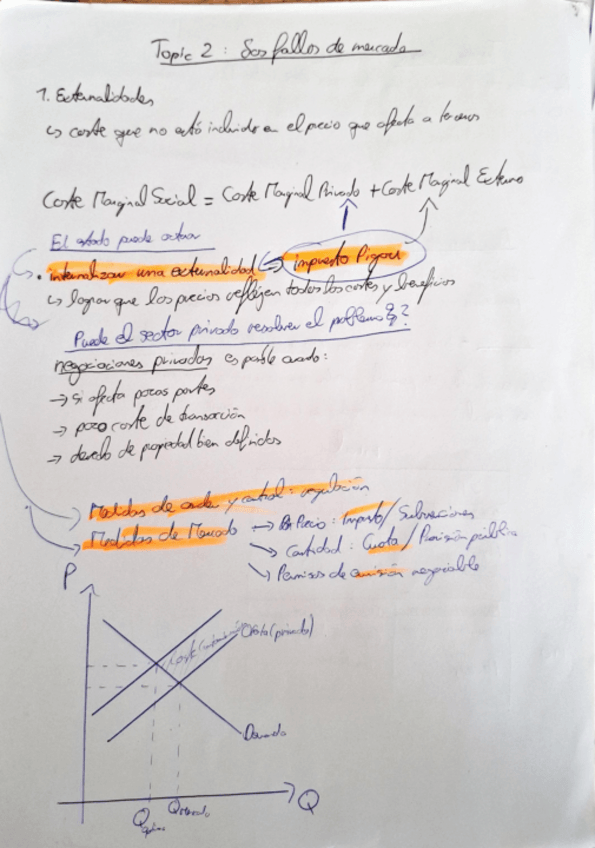 Topic 2 : Los fallos de mercado
1. Externalidades
↳ coste que no está incluido en el precio que afecta a terceros
Coste Marginal Social = Coste Marginal Privado + Coste Marginal Externo
El estado puede actuar
• internalizar una externalidad → impuesto Pigou
↳ lograr que los precios reflejen todos los costes y beneficios
Puede el sector privado resolver el problema?
negociaciones privadas es posible cuando:
→ si afecta pocas partes
→ poco coste de transacción
→ derecho de propiedad bien definidos
Medidas de orden y control : regulación
Medidas de Mercado → Por Precio : Impuesto / Subvenciones
↘ Cantidad : Cuota / Provisión pública
↘ Permisos de emisión negociable
P
Oferta (privado)
Demanda
Q
Q mercado
Q óptimo